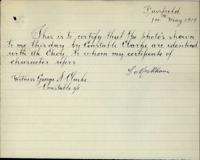 Fairfield
1st May 1919
This is to certify that the photo's shown
to me this day by Constable Clarke are identical
with Ah Chong to whom my certificate of
character refers
Witness George A. Clarke
Constable